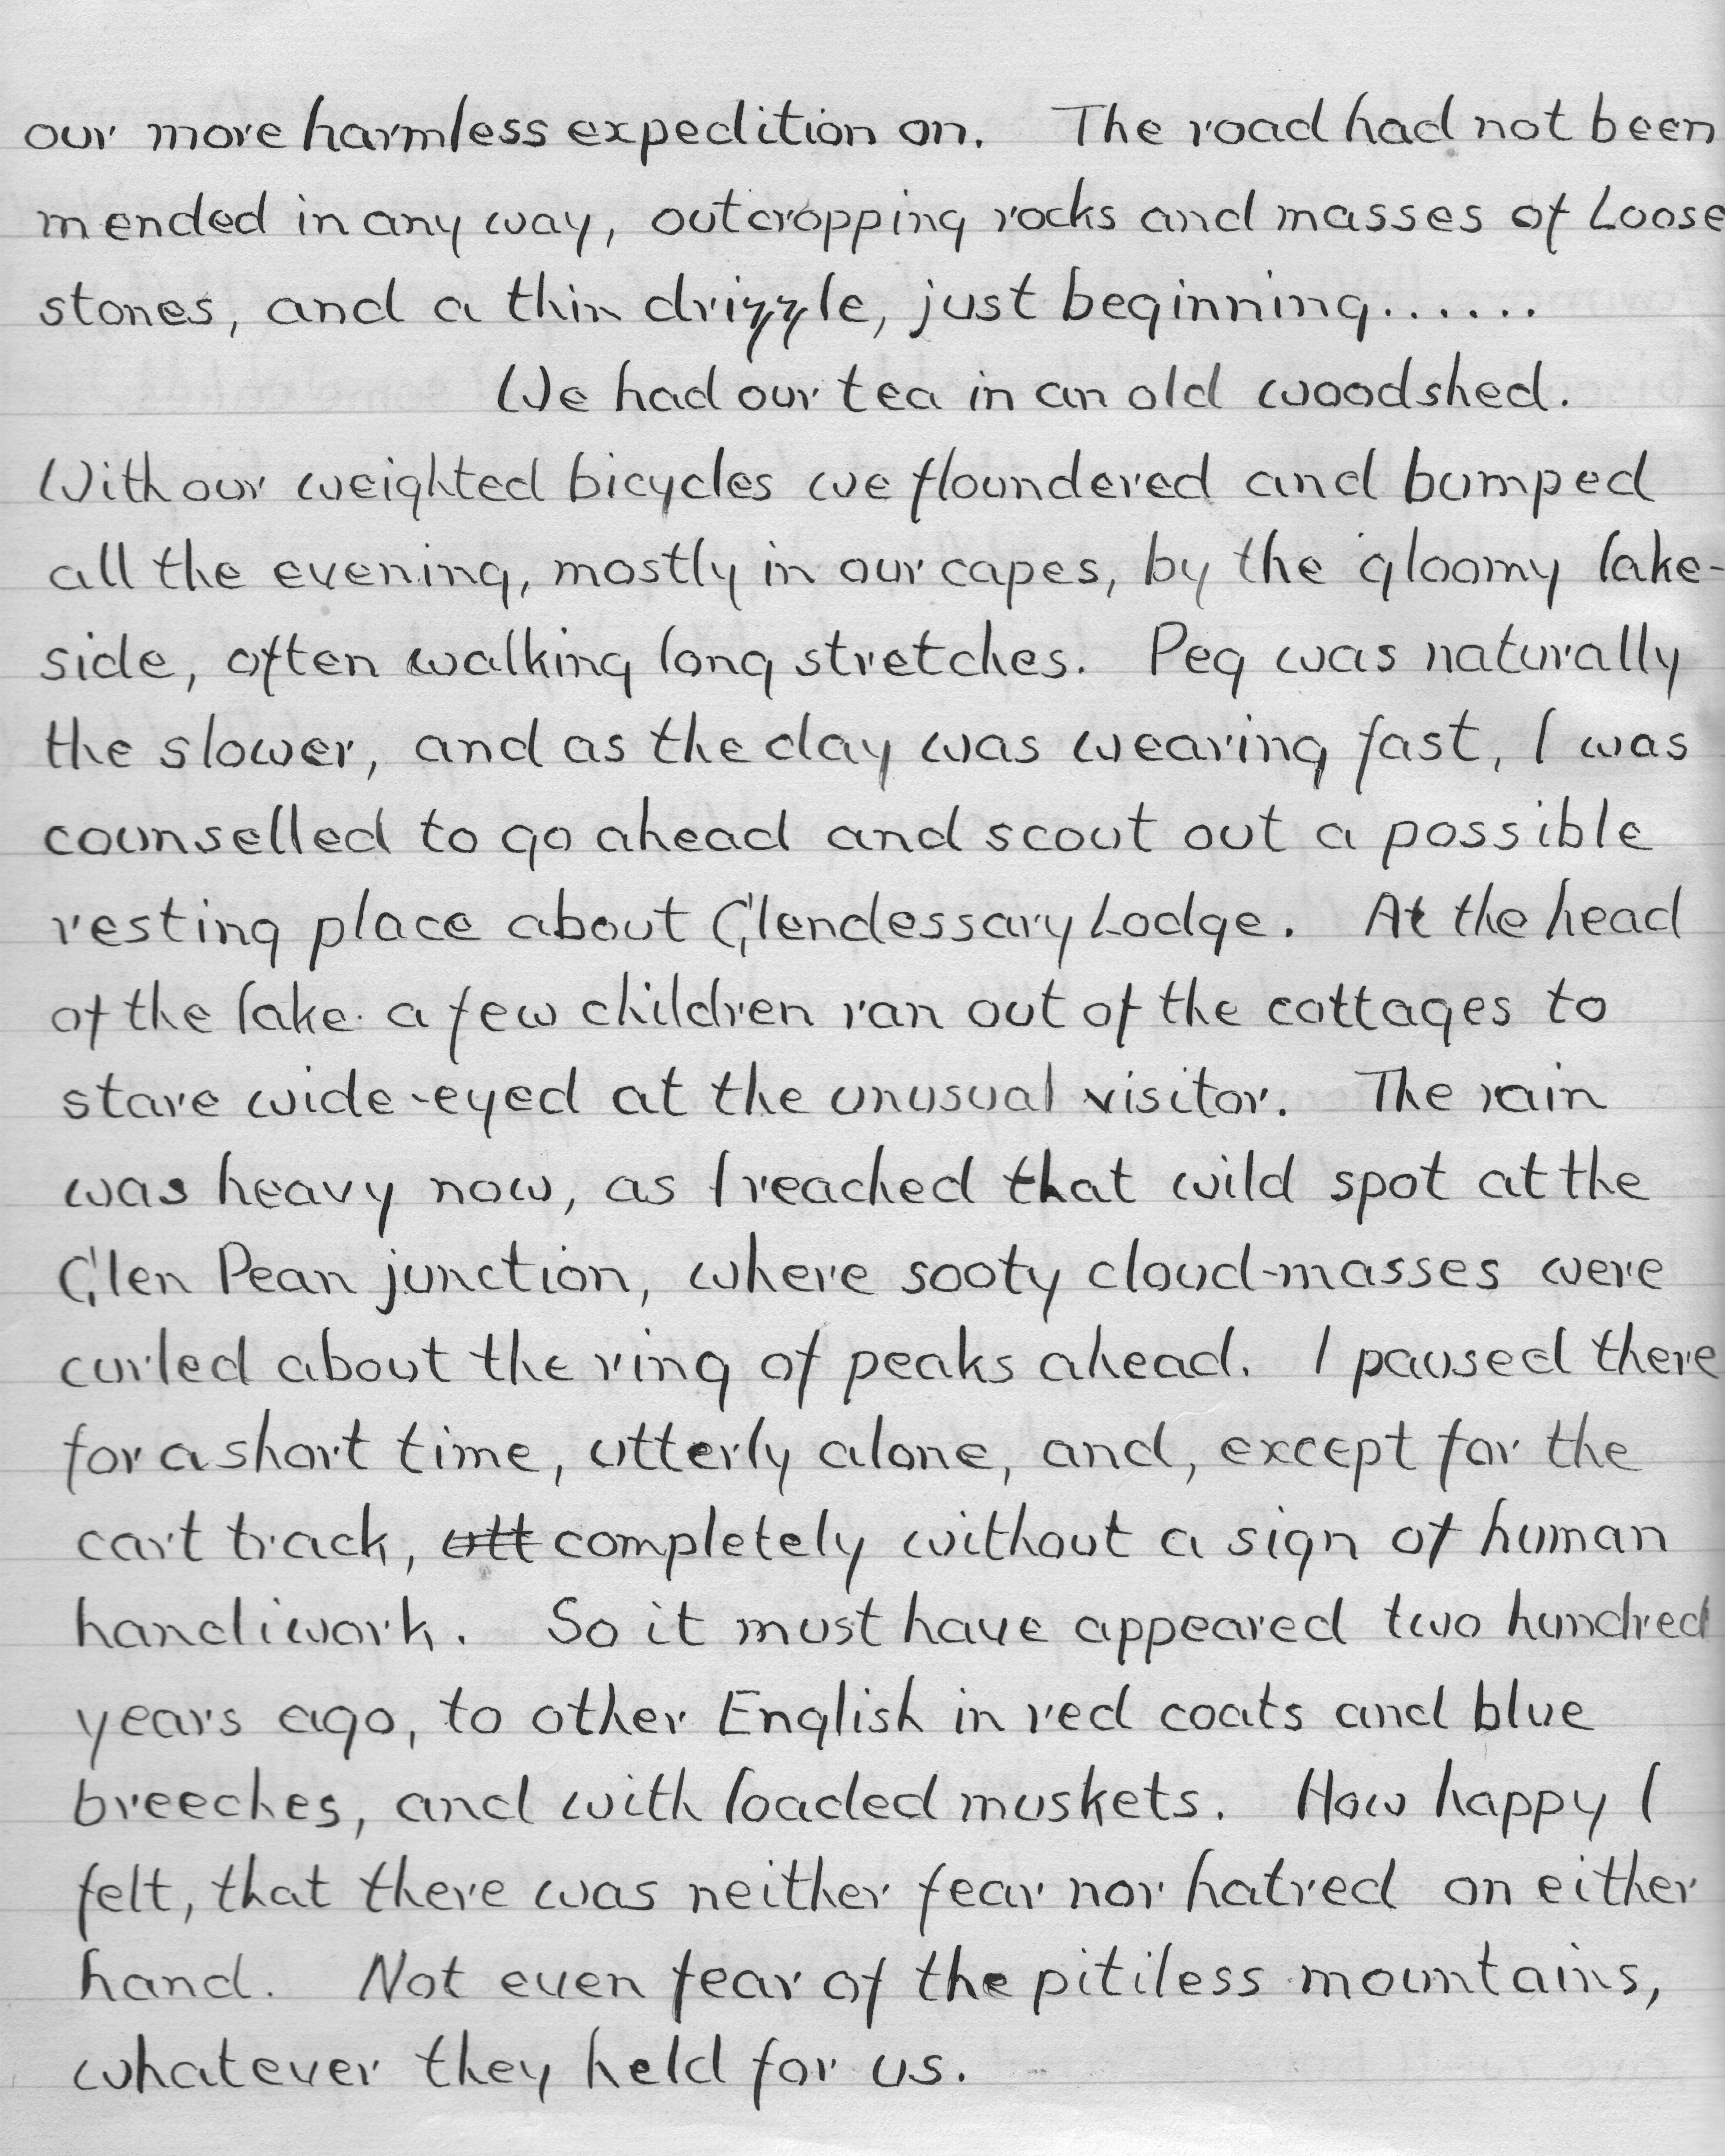 our more harmless expedition on. The road had not been
mended in any way, outcropping rocks and masses of Loose
stones, and a thin drizzle, just beginning......
We had our tea in an old woodshed.
With our weighted bicycles we floundered and bumped
all the evening, mostly in our capes, by the gloomy lake-
side, often walking long stretches. Peg was naturally
the slower, and as the day was wearing fast, I was
counselled to go ahead and scout out a possible
resting place about Glendessary Lodge. At the head
of the lake a few children ran out of the cottages to
stare wide-eyed at the unusual visitor. The rain
was heavy now, as I reached that wild spot at the
Glen Pean junction, where sooty cloud-masses were
curled about the ring of peaks ahead. I paused there
for a short time, utterly alone, and, except for the
cart track, utt completely without a sign of human
handiwork. So it must have appeared two hundred
years ago, to other English in red coats and blue
breeches, and with loaded muskets. How happy I
felt, that there was neither fear nor hatred on either
hand. Not even fear of the pitiless mountains,
whatever they held for us.